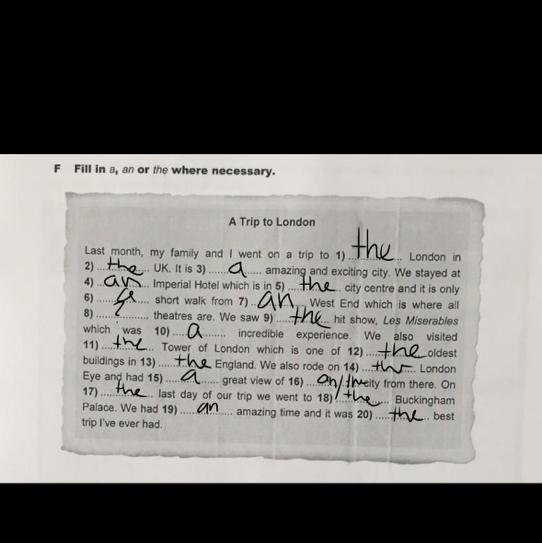 F Fill in a, an or the where necessary.
A Trip to London
Last month, my family and I went on a trip to 1) ...the... London in
2) ...the... UK. It is 3) ......a..... amazing and exciting city. We stayed at
4) ..an.. Imperial Hotel which is in 5) ....the.... city centre and it is only
6) ............ short walk from 7) ..an.... West End which is where all
8) ............ theatres are. We saw 9) .....the... hit show, Les Miserables
which was 10) .....a........ incredible experience. We also visited
11) ....the... Tower of London which is one of 12) ....the oldest
buildings in 13) .....the England. We also rode on 14) ...the... London
Eye and had 15) .....a........ great view of 16) ....an/the city from there. On
17) .....the.... last day of our trip we went to 18) ..the.... Buckingham
Palace. We had 19) .....an...... amazing time and it was 20) .....the.. best
trip I've ever had.